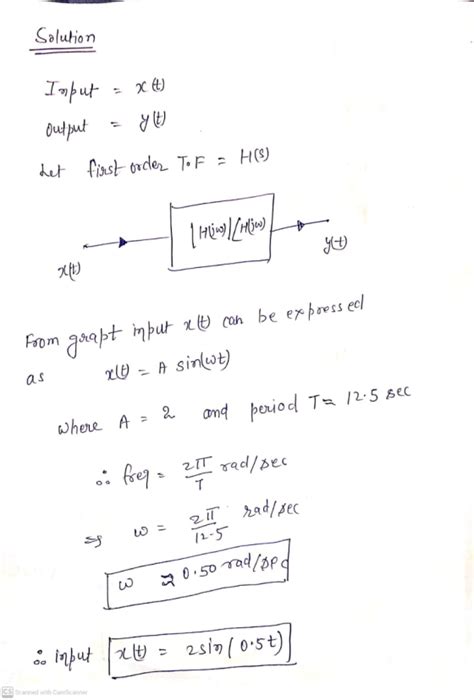 Solution
Input = x(t)
Output = y(t)
Let first order T.F = H(s)
|H(jω)| ∠H(jω)
x(t)
y(t)
From grapt input x(t) can be expressed
as x(t) = A sin(ωt)
where A = 2 and period T = 12.5 sec
∴ freq = 2π/T rad/sec
⇒ ω = 2π/12.5 rad/sec
ω ≈ 0.50 rad/sec
∴ input x(t) = 2sin(0.5t)
CS Scanned with CamScanner